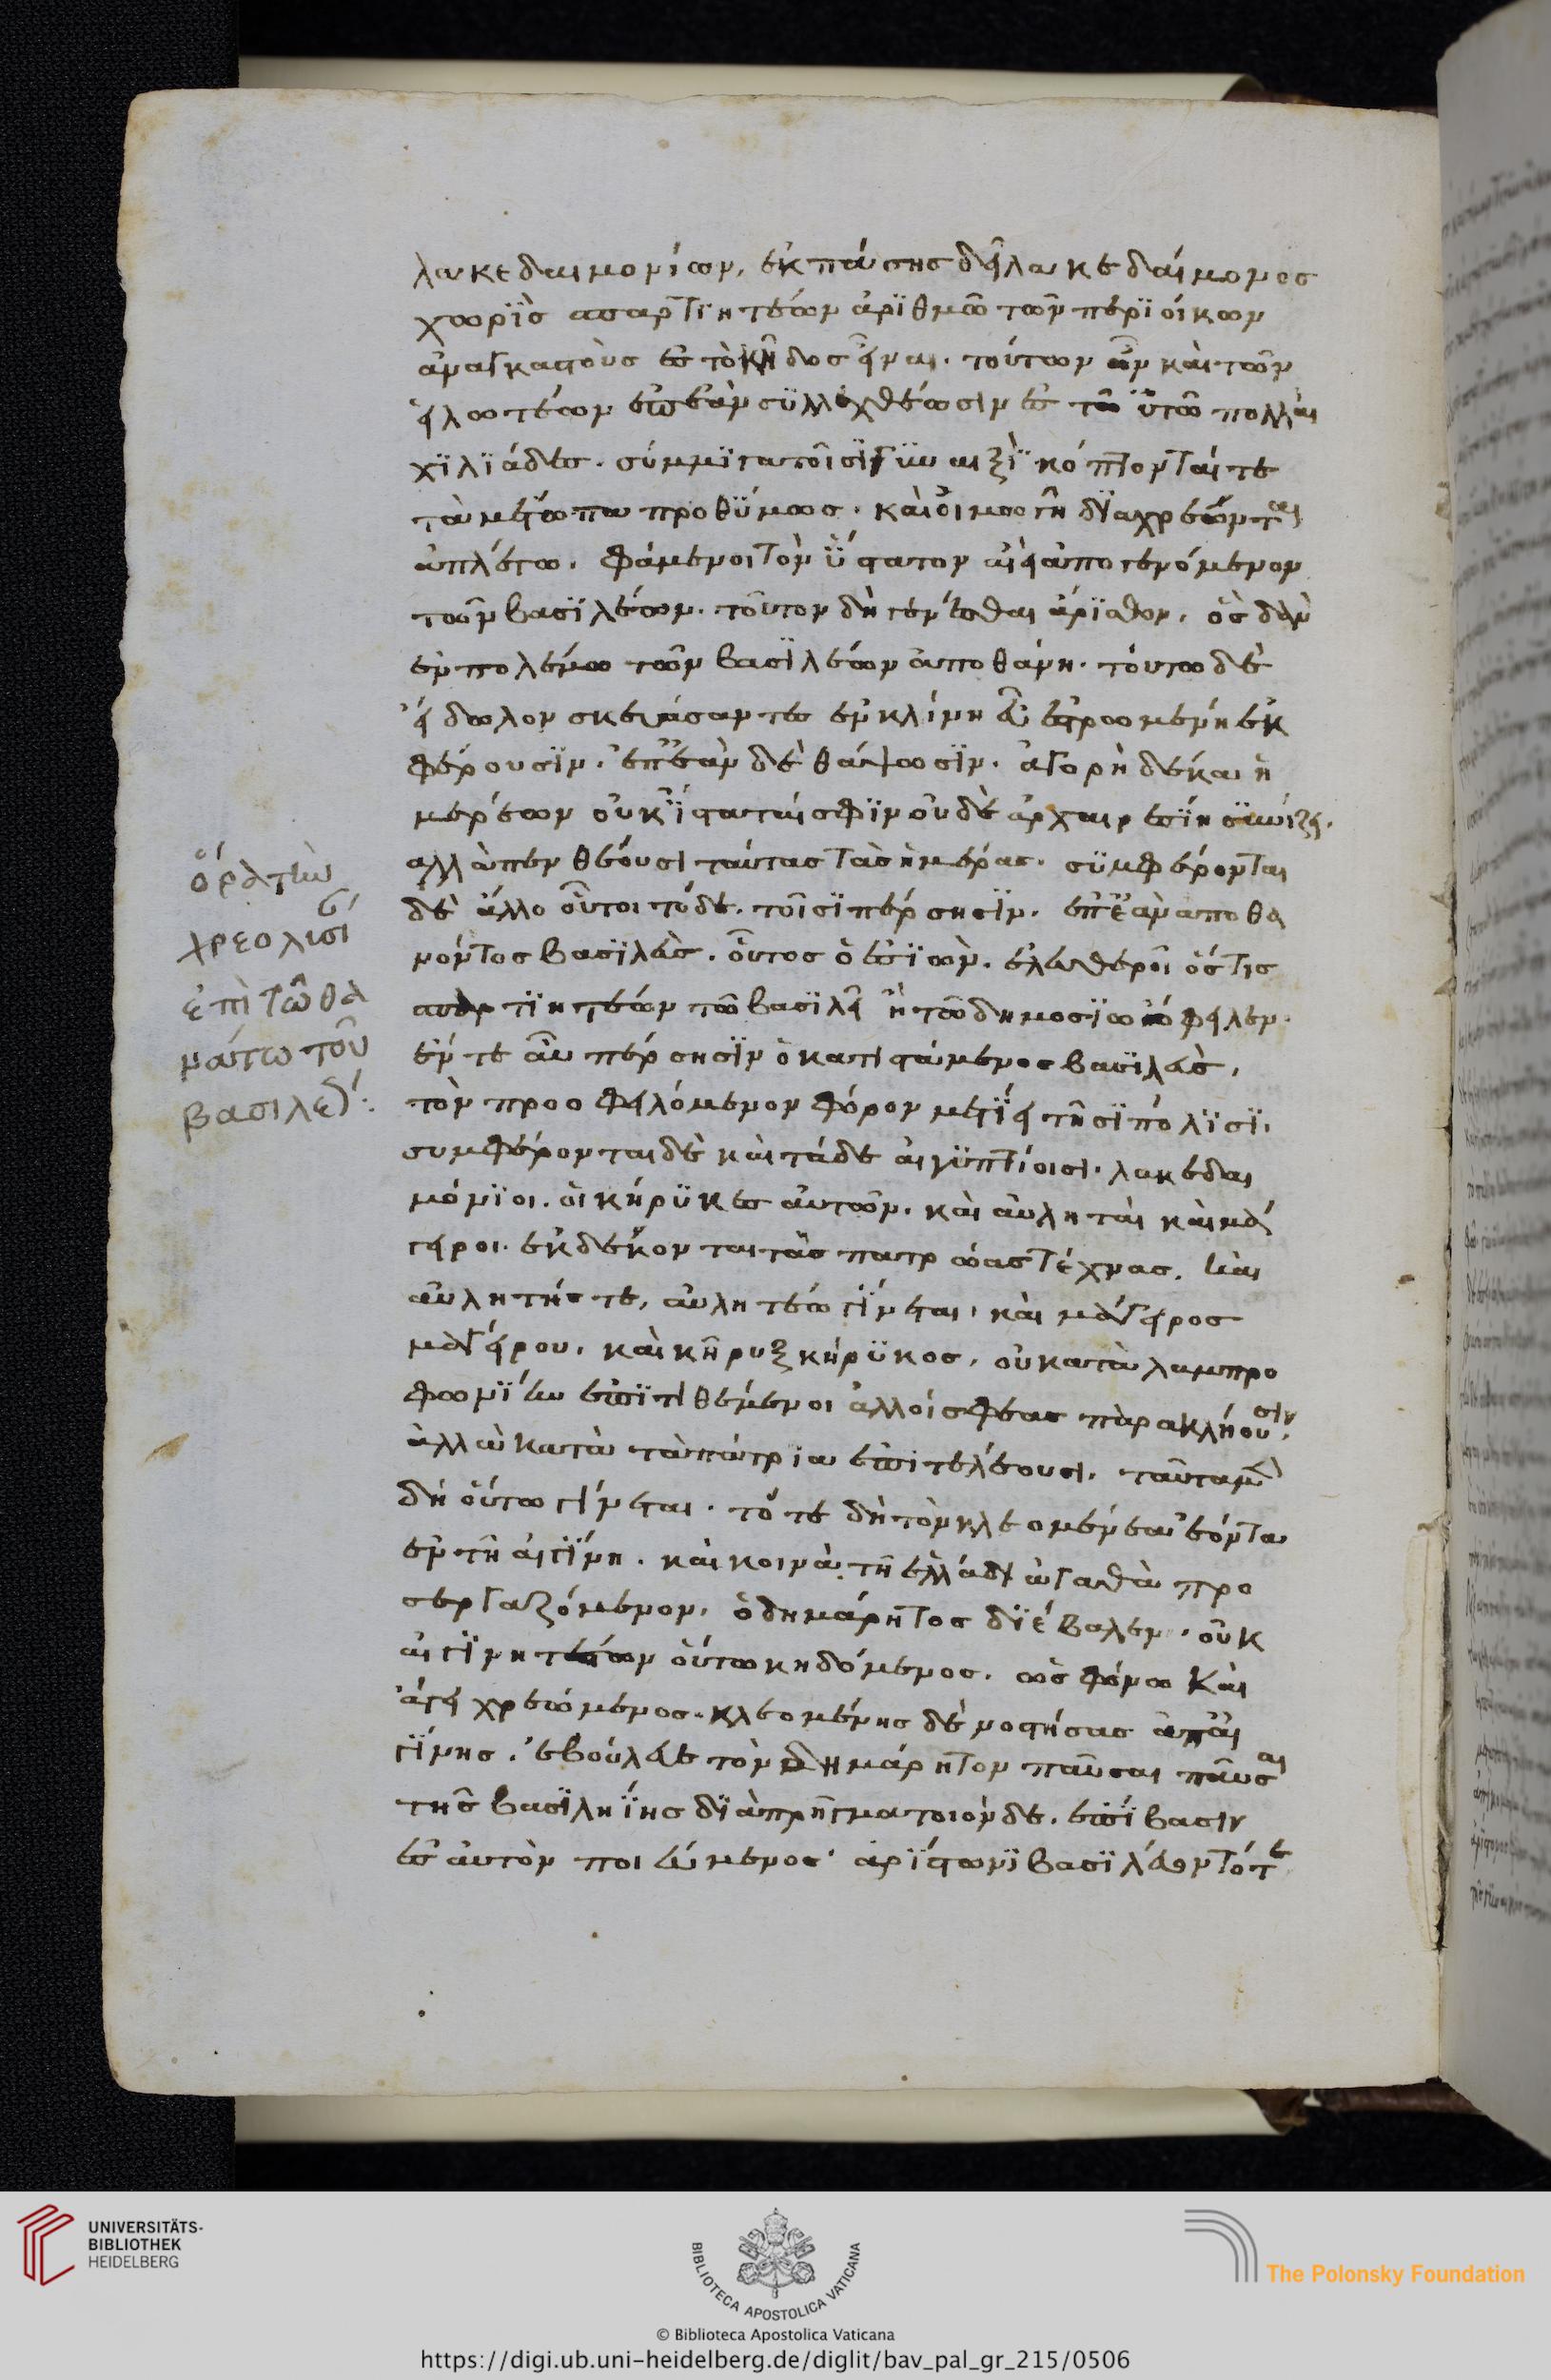 λακεδαιμονίων, ἐκ πάσης δεῖ λακεδαίμονος
χωρὶς σπαρτιητέων ἀριθμῶ τῶν περιοίκων
ἀναγκαστοὺς ἐς τὸ κῆδος ἰέναι. τούτων ὦν καὶ τῶν
εἱλωτέων ἐπεὰν συλλεχθέωσιν ἐς τὠυτὸ πολλαὶ
χιλιάδες. σύμμιγα τοῖσι γυναιξὶ κόπτονταί τε
τὰ μέτωπα προθύμως. καὶ οἰμωγῆ διαχρέωνται
ἀπλέτω. φάμενοι τὸν ὕστατον αἰεὶ ἀπογενόμενον
τῶν βασιλέων. τοῦτον δὴ γενέσθαι ἄριστον. ὃς δ' ἂν
ἐν πολέμω τῶν βασιλέων ἀποθάνη. τούτω δὲ
εἴδωλον σκευάσαντες ἐν κλίνη εὖ ἐστρωμένη ἐκ
φέρουσιν. ἐπεὰν δὲ θάψωσιν. ἀγορὴ δέκα ἡ
μερέων οὐκ ἵσταταί σφιν οὐδὲ ἀρχαιρεσίη συνίζει.
ἀλλὰ πενθέουσι ταύτας τὰς ἡμέρας. συμφέρονται
δὲ ἄλλο οὗτοι τόδε. τοῖσι πέρσησιν. ἐπεὰν ἀποθα
νόντος βασιλέος. οὗτος ὁ ἐσιὼν. ἐλευθεροῖ ὅστις
σπαρτιητέων τῶ βασιλεῖ ἢ τῶ δημοσίω ὤφειλεν.
ἔν τε αὖ πέρσησιν ὁ κατιστάμενος βασιλεὺς.
τὸν προοφειλόμενον φόρον μετίει τῆσι πόλισι.
συμφέρονται δὲ καὶ τάδε αἰγυπτίοισι. λακεδαι
μόνιοι. οἱ κήρυκες αὐτῶν. καὶ αὐληταὶ καὶ μά
γειροι. ἐκδέκονται τὰς πατρώας τέχνας. καὶ
αὐλητής τε, αὐλητέω γίνεται. καὶ μάγειρος
μαγείρου. καὶ κῆρυξ κήρυκος. οὐ κατὰ λαμπρο
φωνίην ἐπιτιθέμενοι ἄλλοι σφέας παρακληίουσιν.
ἀλλὰ κατὰ τὰ πάτρια ἐπιτελέουσι. ταῦτα μὲν
δὴ οὕτω γίνεται. τότε δὴ τὸν κλεομένεα ἐόντα
ἐν τῆ αἰγίνη. καὶ κοινὰ τῆ ἑλλάδι ἀγαθὰ προ
σεργαζόμενον. ὁ δημάρητος διέβαλεν. οὐκ
αἰγινητέων οὕτω κηδόμενος. ὡς φθόνω καὶ
ἄγει χρεώμενος. κλεομένης δὲ νοστήσας ἀπ' αἰ
γίνης. ἐβούλευε τὸν δημάρητον παῦσαι παῦσαι
τῆς βασιληίης διὰ πρῆγμα τοιόνδε. ἐπίβασιν
ἐς αὐτὸν ποιεύμενος. ἀρίστωνι βασιλεύοντι τε
ὅρα τὴν
χρεολυσί
ἐπὶ τῶ θα
νάτω τοῦ
βασιλέ:
UNIVERSITÄTS-
BIBLIOTHEK
HEIDELBERG
BIBLIOTECA APOSTOLICA VATICANA
The Polonsky Foundation
© Biblioteca Apostolica Vaticana
https://digi.ub.uni-heidelberg.de/diglit/bav_pal_gr_215/0506